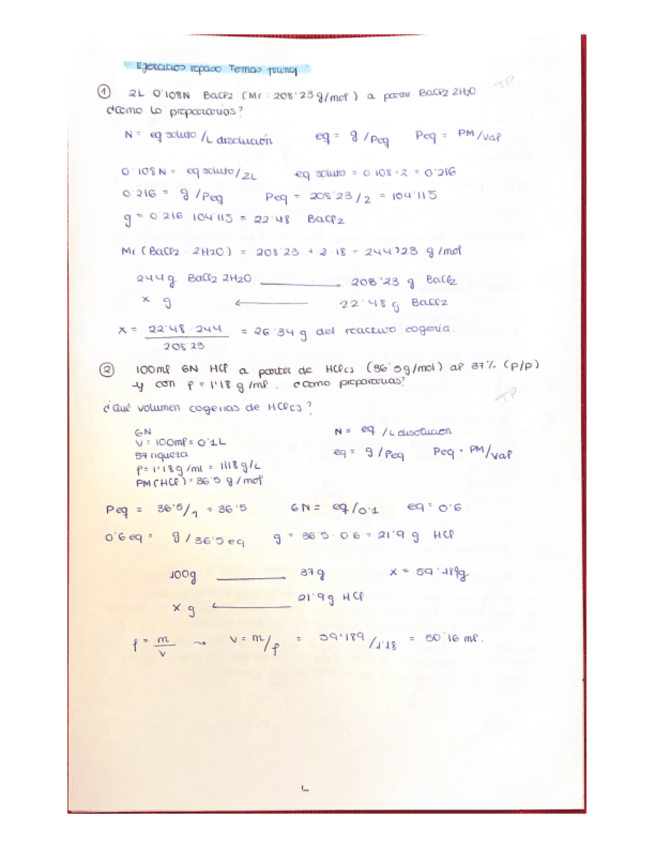 Ejercicios repaso Temas
① 2L 0'108N BaCl2 (Mr: 208'23 g/mol) a partir BaCl2 2H2O TP
¿Cómo lo prepararías?
N = eq soluto /L disolución eq = g/Peq Peq = PM/val
0'108N = eq soluto/2L eq soluto = 0'108·2 = 0'216
0'216 = g/Peq Peq = 208'23/2 = 104'115
g = 0'216·104'115 = 22'48 BaCl2
Mr (BaCl2 · 2H2O) = 208'23 + 2·18 = 244'23 g/mol
244g BaCl2 2H2O → 208'23 g BaCl2
x g ← 22'48 g BaCl2
x = 22'48·244 / 208'23 = 26'34 g del reactivo cogería.
② 100ml 6N HCl a partir de HCl(c) (36'5g/mol) al 37% (p/p)
y con ρ = 1'18 g/ml. ¿Cómo prepararías? TP
¿Qué volumen cogerías de HCl(c)?
6N N = eq /L disolución
V = 100ml = 0'1L eq = g/Peq Peq = PM/val
37 riqueza
ρ = 1'18 g/ml = 1118 g/L
PM(HCl) = 36'5 g/mol
Peq = 36'5/1 = 36'5 6N = eq/0'1 eq = 0'6
0'6 eq = g/36'5 eq g = 36'5·0'6 = 21'9 g HCl
100g — 37g x = 59'189g
x g ← 21'9g HCl
ρ = m/v → v = m/ρ = 59'189/1'18 = 50'16 ml.